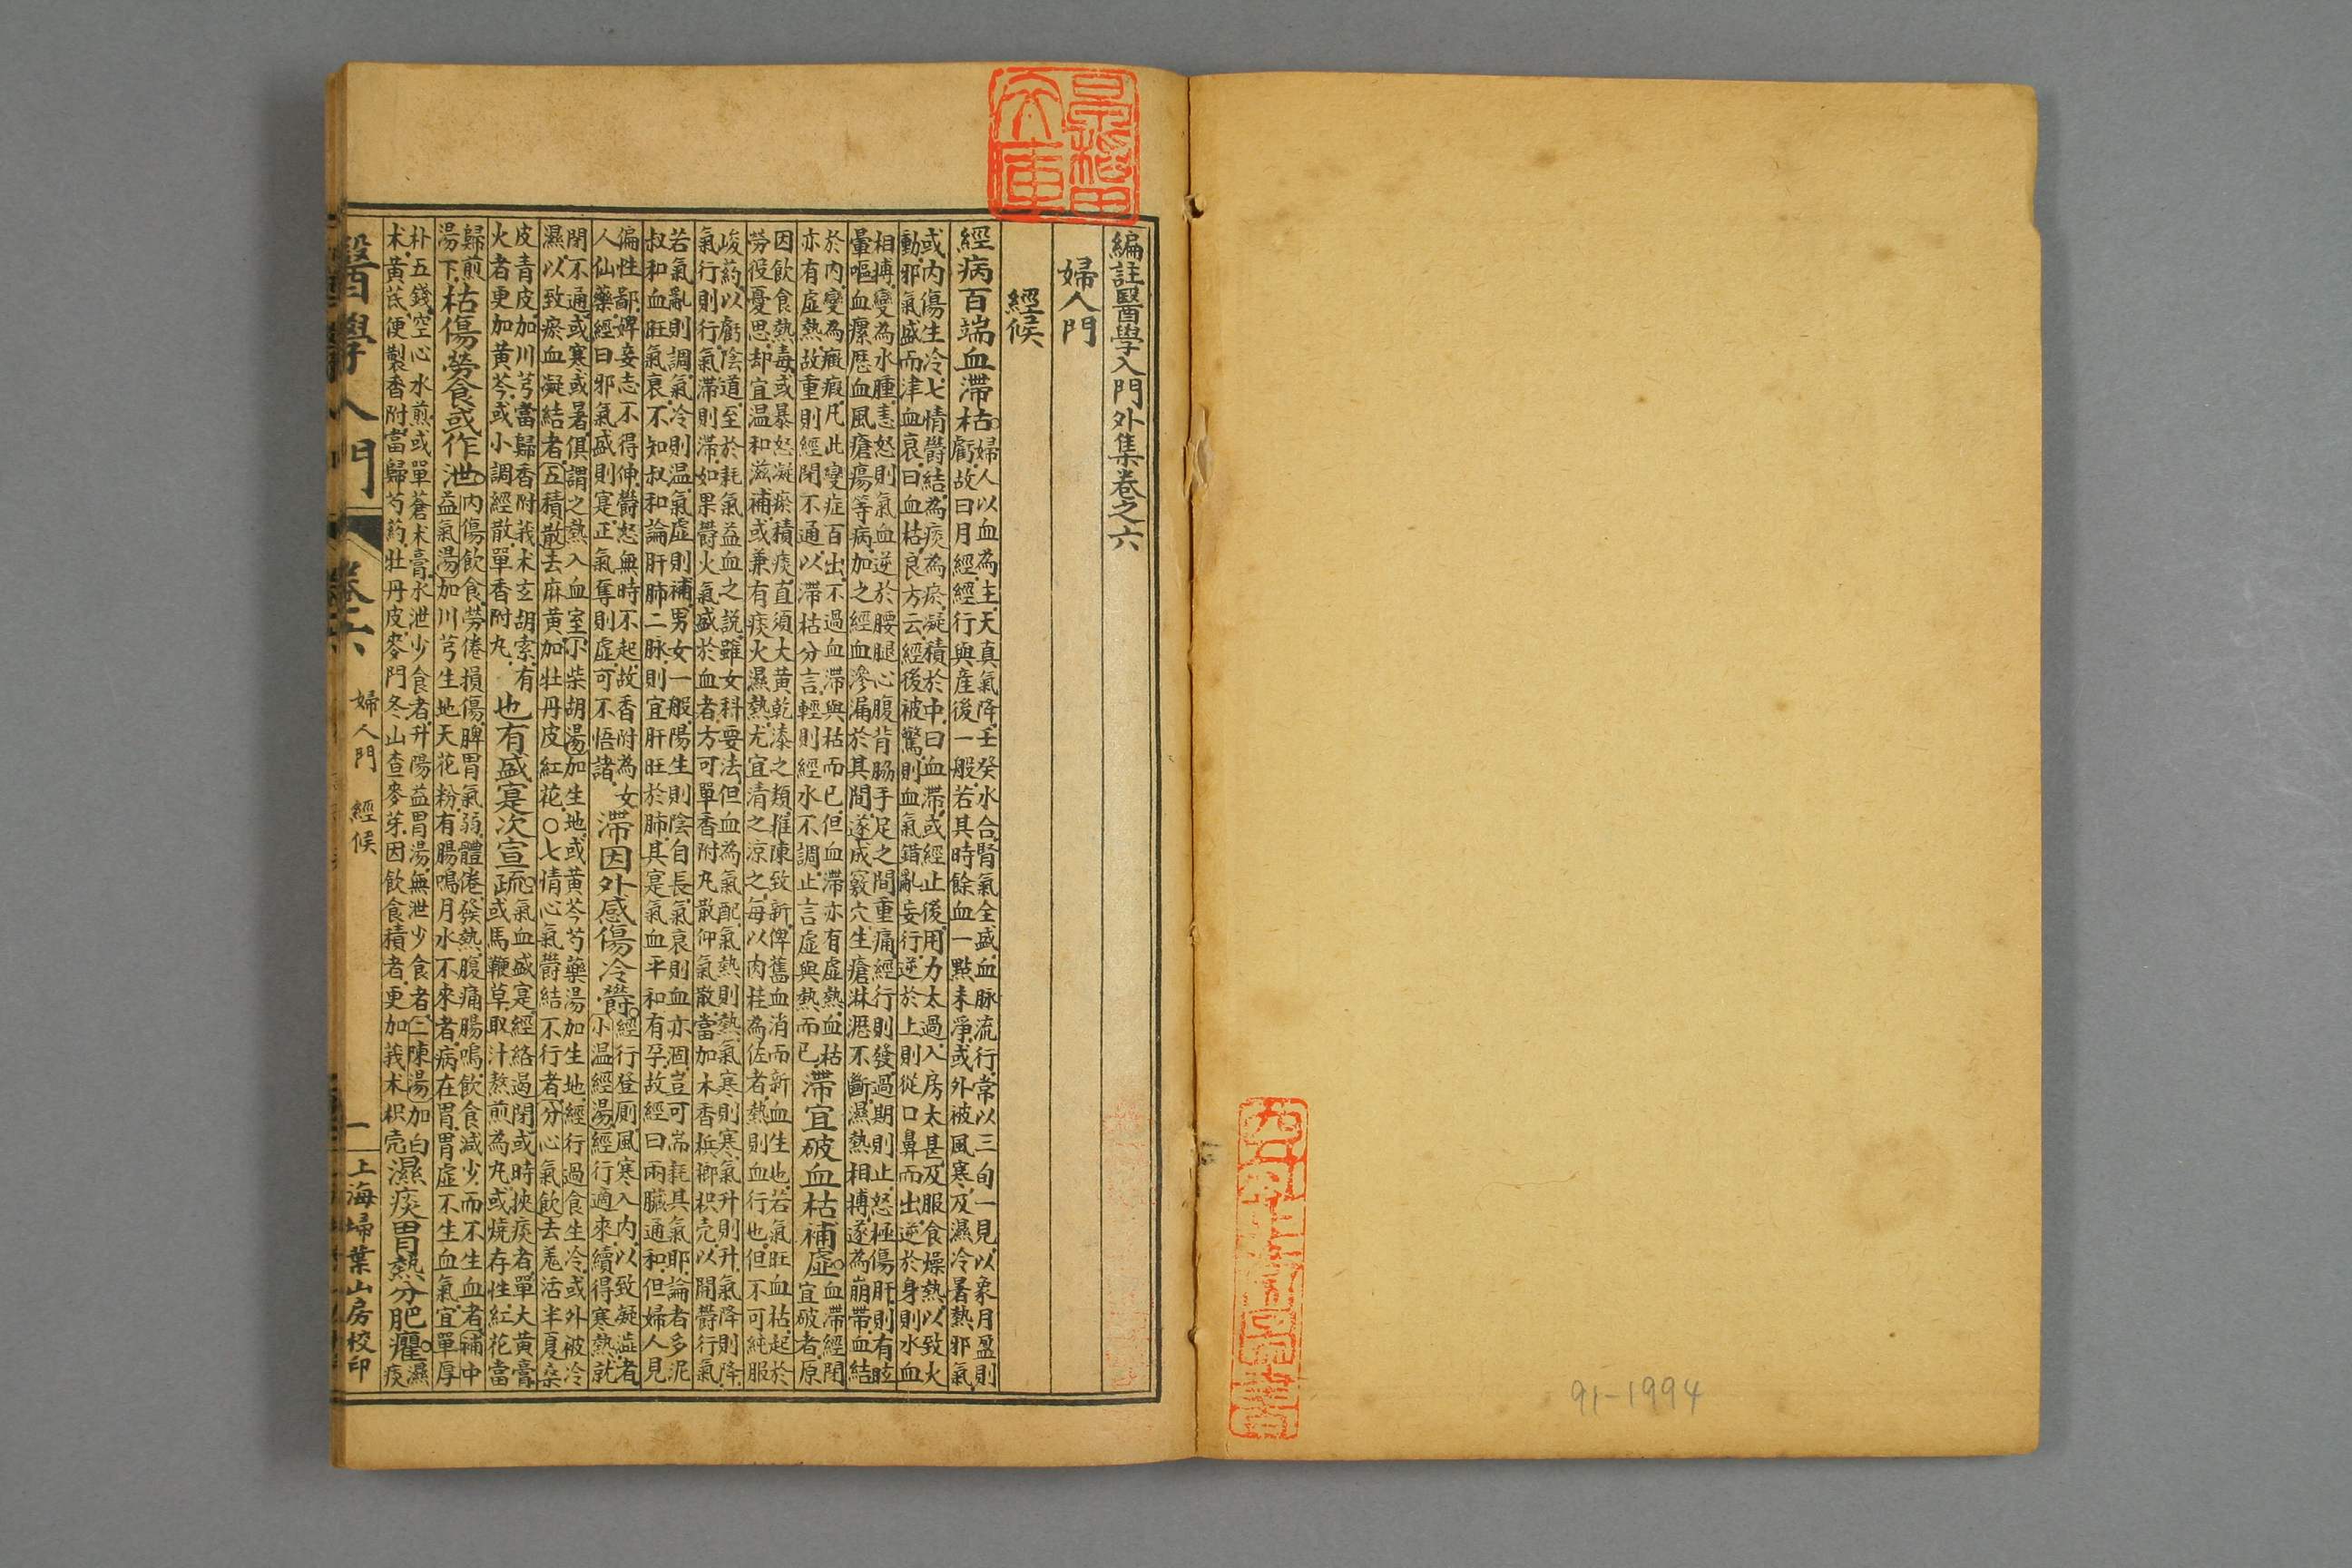 編註醫學入門外集卷之六
婦人門
經候
經病百端血滯枯婦人以血為主天真氣降壬癸水合腎氣全盛血脉流行常以三旬一見以象月盈則
虧故曰月經經行與產後一般若其時餘血一點未淨或外被風寒及濕冷暑熱邪氣
或內傷生冷七情鬱結為痰為瘀凝積於中曰血滯或經止後用力太過入房太甚及服食燥熱以致火
動邪氣盛而津血衰曰血枯良方云經後被驚則血氣錯亂妄行逆於上則從口鼻而出逆於身則水血
相搏變為水腫恚怒則氣血逆於腰腿心腹背脇手足之間重痛經行則發過期則止怒極傷肝則有眩
暈嘔血瘰癧血風瘡瘍等病加之經血滲漏於其間遂成竅穴生瘡淋瀝不斷濕熱相搏遂為崩帶血結
於內變為癥瘕凡此變症百出不過血滯與枯而已但血滯亦有虛熱血枯
亦有虛熱故重則經閉不通以滯枯分言輕則經水不調止言虛與熱而已滯宜破血枯補虛血滯經閉
宜破者原
因飲食熱毒或暴怒凝瘀積痰直須大黃乾漆之類推陳致新俾舊血消而新血生也若氣旺血枯起於
勞役憂思却宜温和滋補或兼有痰火濕熱尤宜清之涼之每以肉桂為佐者熱則血行也但不可純服
峻藥以虧陰道至於耗氣益血之說雖女科要法但血為氣配氣熱則熱氣寒則寒氣升則升氣降則降
氣行則行氣滯則滯如果鬱火氣盛於血者方可單香附丸散仰氣散當加木香梹榔枳壳以開鬱行氣
若氣亂則調氣冷則温氣虛則補男女一般陽生則陰自長氣衰則血亦涸豈可耑耗其氣耶論者多泥
叔和血旺氣衰不知叔和論肝肺二脉則宜肝旺於肺其寔氣血平和有孕故經曰兩臟通和但婦人見
偏性鄙婢妾志不得伸鬱怒無時不起故香附為女
人仙藥經曰邪氣盛則寔正氣奪則虛可不悟諸滯因外感傷冷鬱經行登厠風寒入內以致凝澁者
小温經湯經行適來續得寒熱就
閉不通或寒或暑俱謂之熱入血室小柴胡湯加生地或黃芩芍藥湯加生地經行過食生冷或外被冷
濕以致瘀血凝結者五積散去麻黃加牡丹皮紅花○七情心氣鬱結不行者分心氣飲去羗活半夏桑
皮青皮加川芎當歸香附莪术玄胡索有
火者更加黃芩或小調經散單香附丸也有盛寔次宣疏氣血盛寔經絡遏閉或時挾痰者單大黃膏
或馬鞭草取汁熬煎為丸或燒存性紅花當
歸煎
湯下枯傷勞食或作泄內傷飲食勞倦損傷脾胃氣弱體倦發熱腹痛腸鳴飲食減少而不生血者補中
益氣湯加川芎生地天花粉有腸鳴月水不來者病在胃胃虛不生血氣宜單厚
朴五錢空心水煎或單蒼术膏水泄少食者升陽益胃湯無泄少食者二陳湯加白
术黃芪便製香附當歸芍藥牡丹皮麥門冬山查麥芽因飲食積者更加莪术枳壳濕痰胃熱分肥癯濕
痰
醫學入門
卷六
婦人門 經候
一
上海埽葉山房校印
91-1994